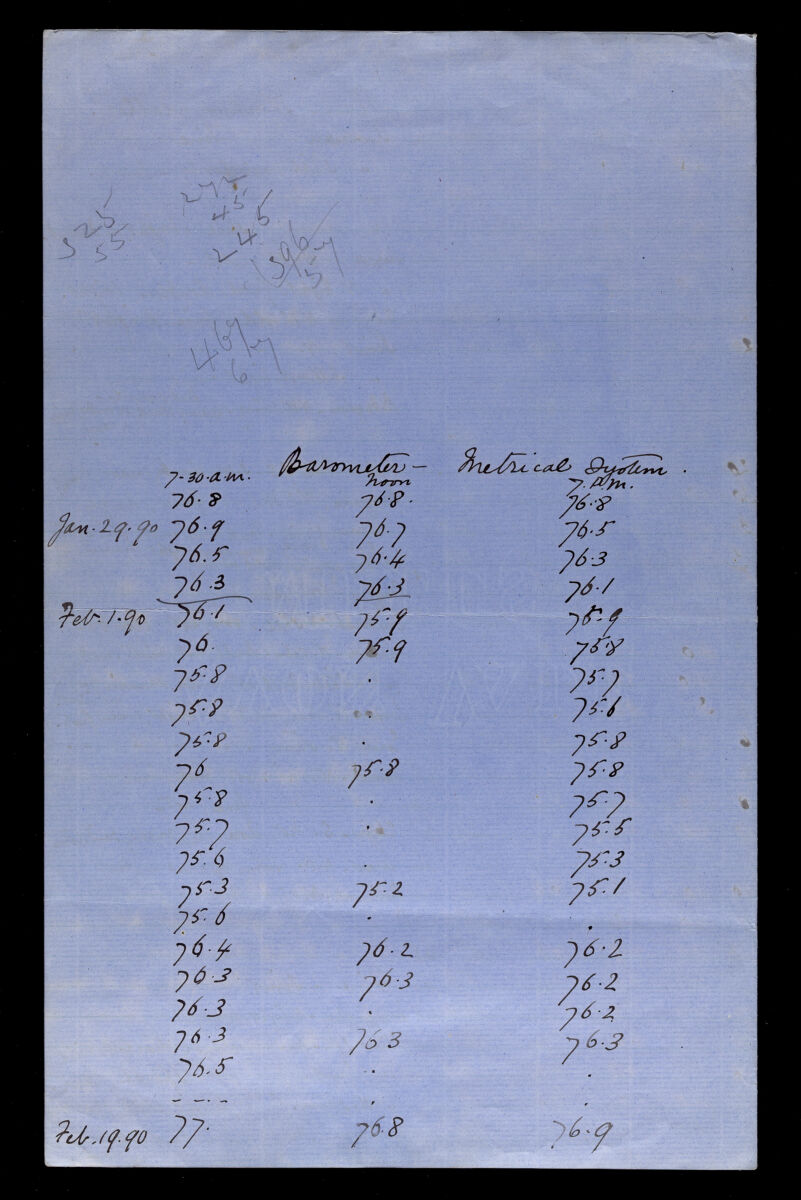 325
55
272
45
245
396
57
467
67
Barometer - Metrical System.
7-30.a.m. Noon 7. P.M.
76.8 76.8. 76.8
Jan. 29. 90 76.9 76.7 76.5
76.5 76.4 76.3
76.3 76.3 76.1
Feb. 1. 90 76.1 75.9 75.9
76. 75.9 75.8
75.8 . 75.7
75.8 . 75.6
75.8 . 75.8
76 75.8 75.8
75.8 . 75.7
75.7 . 75.5
75.6 . 75.3
75.3 75.2 75.1
75.6 . .
76.4 76.2 76.2
76.3 76.3 76.2
76.3 . 76.2
76.3 763 76.3
76.5 . .
- - . - . .
Feb. 19. 90 77. 76.8 76.9